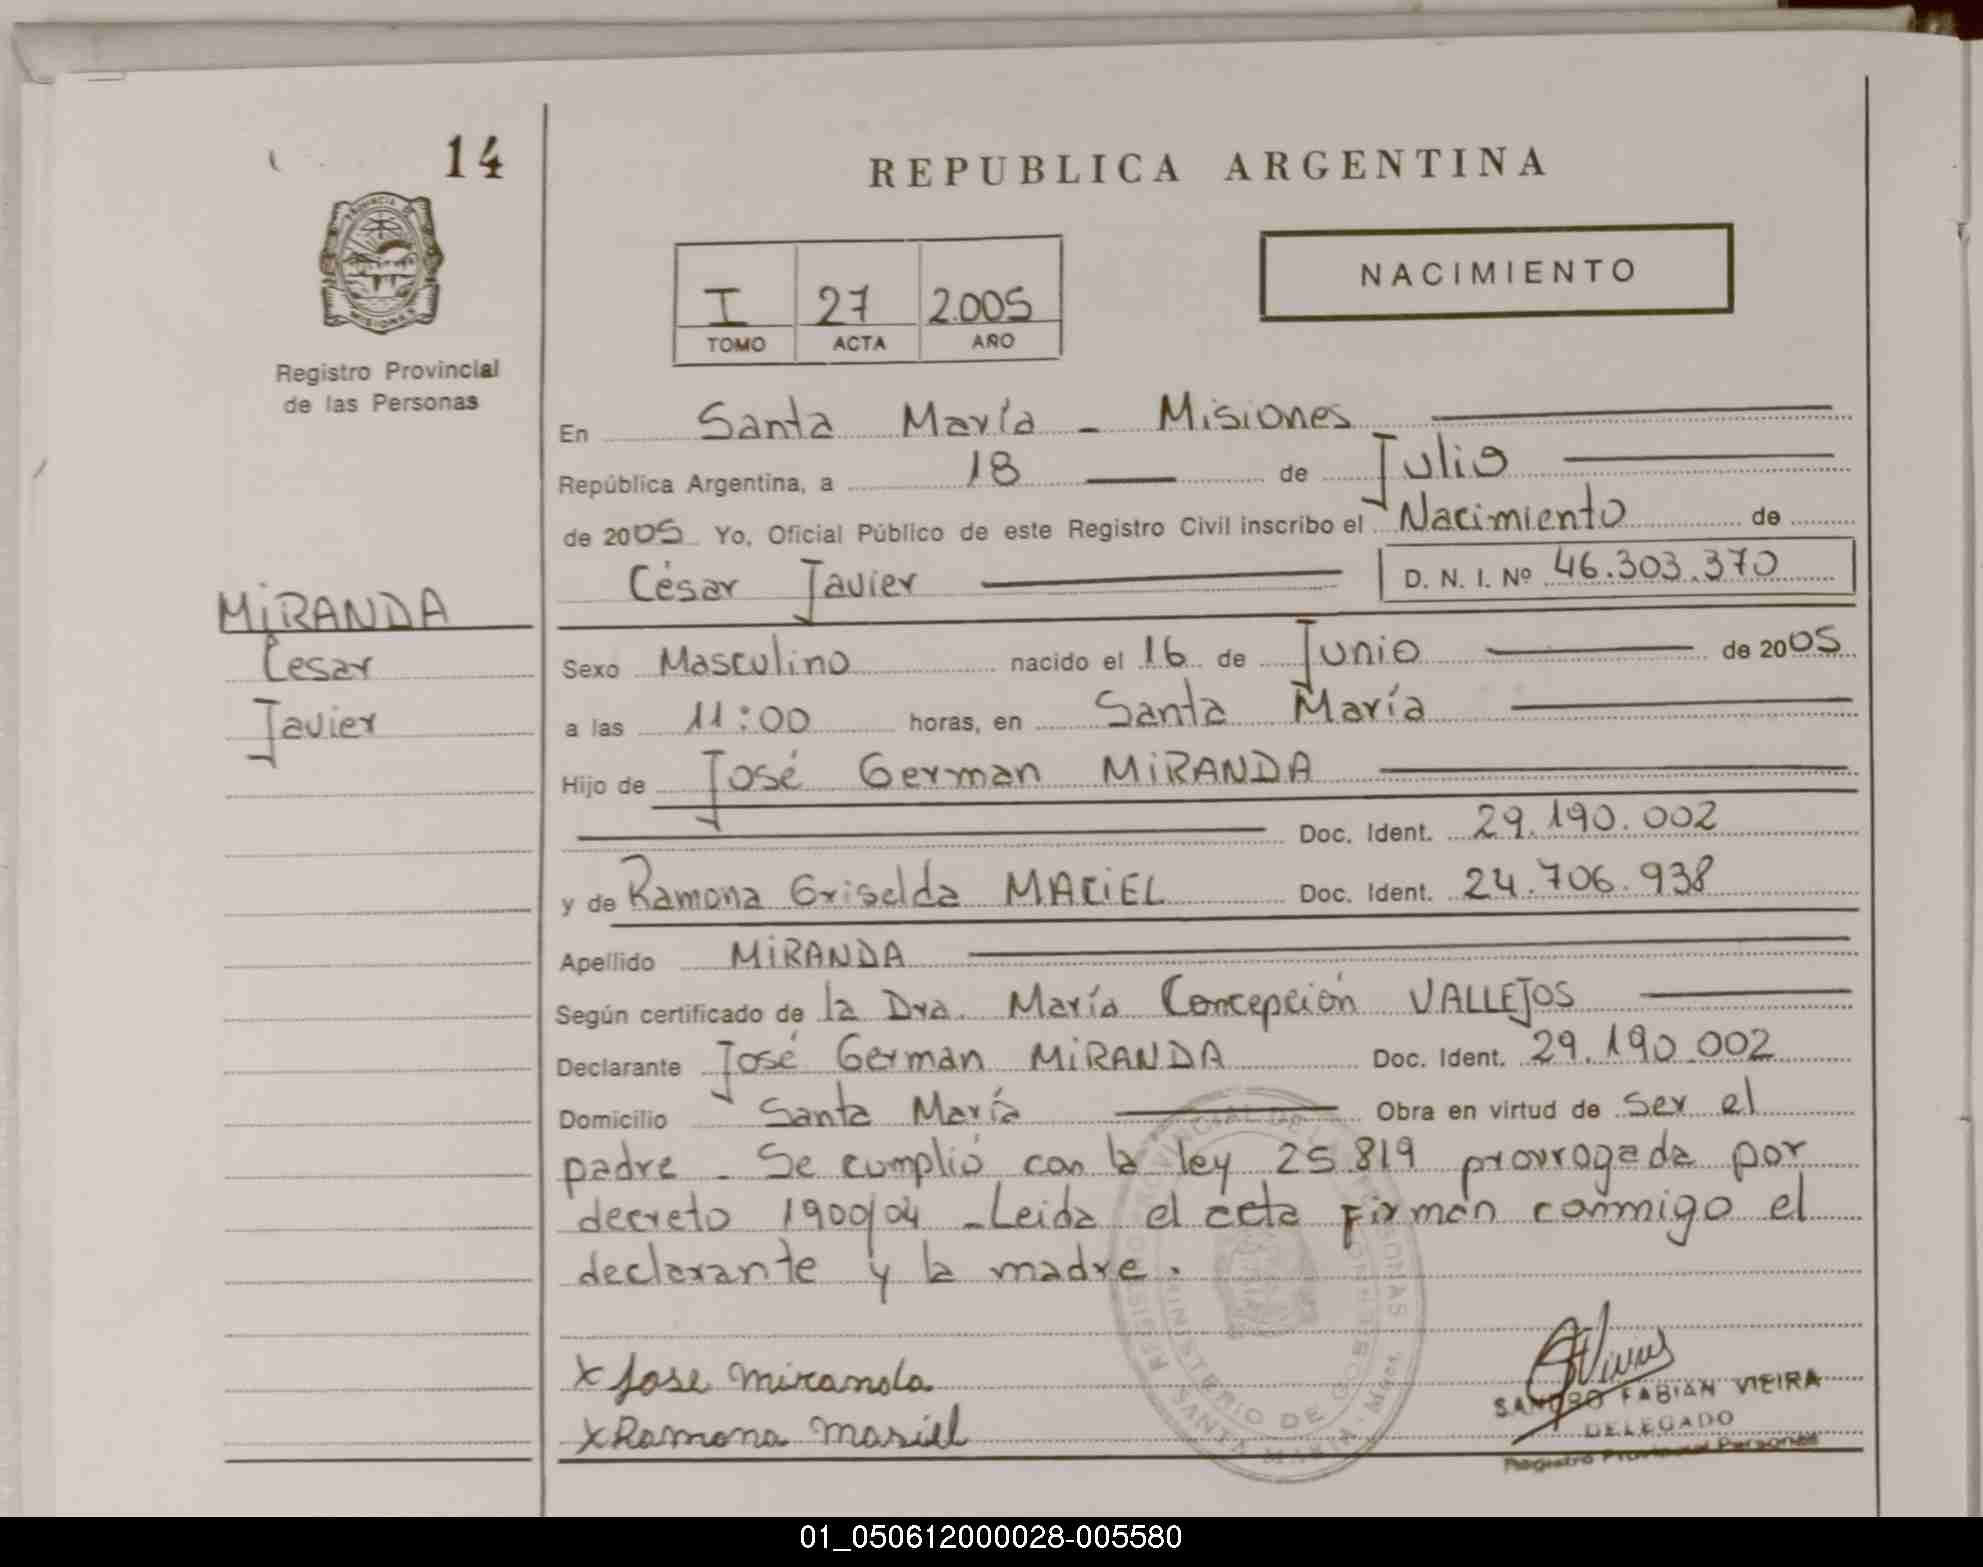 14
PROVINCIA DE
MISIONES
Registro Provincial
de las Personas
MIRANDA
Cesar
Javier
REPUBLICA ARGENTINA
NACIMIENTO
I 27 2.005
TOMO ACTA AÑO
En Santa María - Misiones
República Argentina, a 18 de Julio
de 2005 Yo, Oficial Público de este Registro Civil inscribo el Nacimiento de
César Javier D. N. I. Nº 46.303.370
Sexo Masculino nacido el 16 de Junio de 2005
a las 11:00 horas, en Santa María
Hijo de José German MIRANDA
Doc. Ident. 29.190.002
y de Ramona Griselda MACIEL Doc. Ident. 24.706.938
Apellido MIRANDA
Según certificado de la Dra. María Concepción VALLEJOS
Declarante José German MIRANDA Doc. Ident. 29.190.002
Domicilio Santa María Obra en virtud de ser el
padre - Se cumplió con la ley 25819 prorrogada por
decreto 1900/04 - Leida el acta firman conmigo el
declarante y la madre.
x Jose miranda
x Ramona masiel
SANDRO FABIAN VIEIRA
DELEGADO
Registro Provincial Personas
REGISTRO PROVINCIAL DE LAS PERSONAS
MINISTERIO DE GOBIERNO
SANTA MARIA - Mnes.
01_050612000028-005580